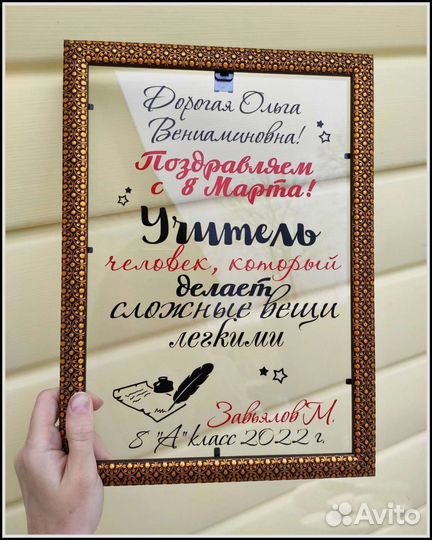 Дорогая Ольга
Вениаминовна!
Поздравляем
с 8 Марта!
Учитель
человек, который
делает
сложные вещи
легкими
Завьялов М.
8 "А" класс 2022 г.
Avito